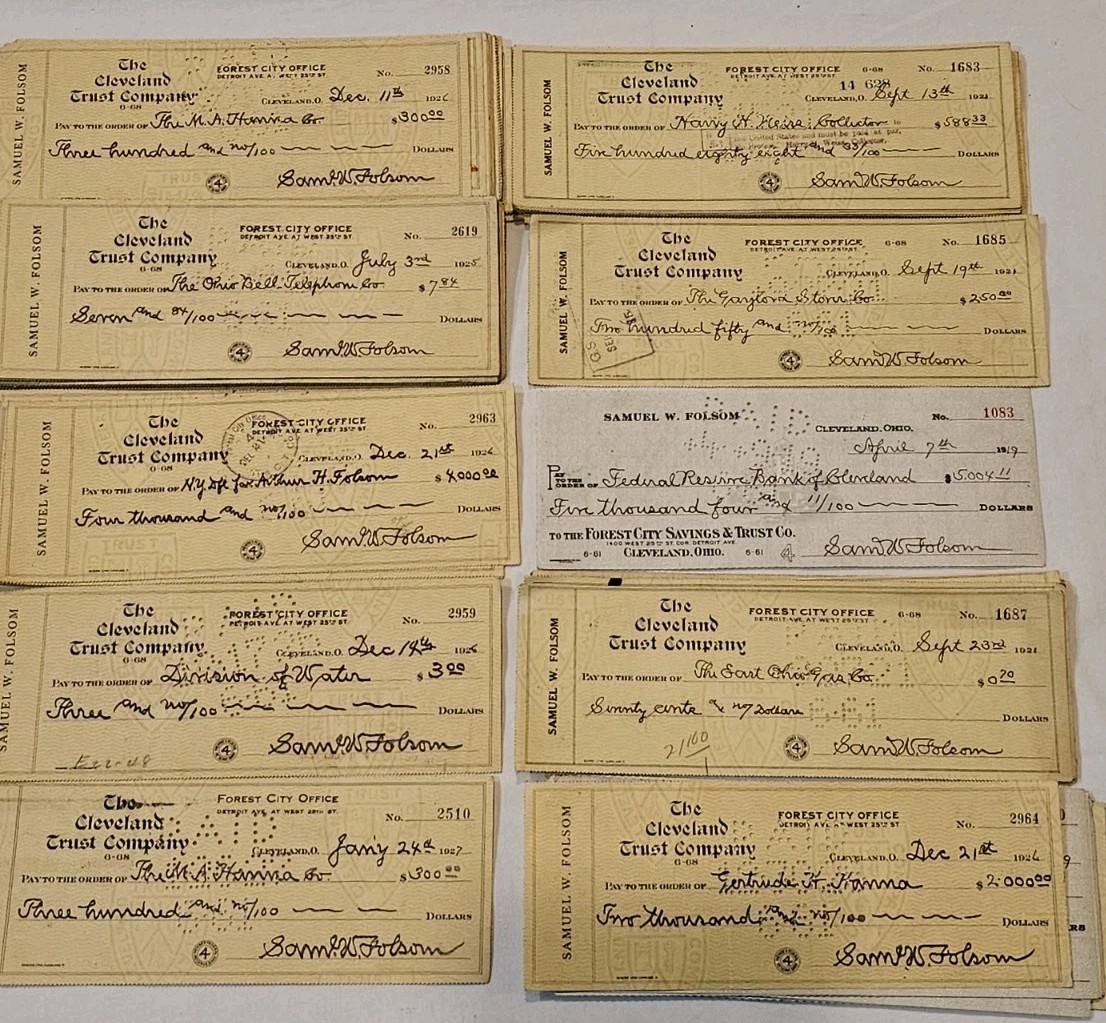 SAMUEL W. FOLSOM
The Cleveland Trust Company
6-68
FOREST CITY OFFICE
DETROIT AVE. AT WEST 25TH ST.
No. 2958
CLEVELAND, O. Dec. 11th 1926
PAY TO THE ORDER OF The M. A. Hanna Co. $300.00
Three hundred and no/100 DOLLARS
4
Sam'l W. Folsom
SAMUEL W. FOLSOM
The Cleveland Trust Company
6-68
FOREST CITY OFFICE
DETROIT AVE. AT WEST 25TH ST.
No. 2619
CLEVELAND, O. July 3rd 1925
PAY TO THE ORDER OF The Ohio Bell Telephone Co $7 84
Seven and 84/100 DOLLARS
4
Sam'l W. Folsom
SAMUEL W. FOLSOM
The Cleveland Trust Company
6-68
FOREST CITY OFFICE
DETROIT AVE. AT WEST 25TH ST.
No. 2963
CLEVELAND, O. Dec. 21st 1926
PAY TO THE ORDER OF N.Y. Dft for Arthur H. Folsom $4000 00
Four thousand and no/100 DOLLARS
4
Sam'l W. Folsom
SAMUEL W. FOLSOM
The Cleveland Trust Company
6-68
FOREST CITY OFFICE
DETROIT AVE. AT WEST 25TH ST.
No. 2959
CLEVELAND, O. Dec 14th 1926
PAY TO THE ORDER OF Division of Water $3 00
Three and no/100 DOLLARS
4
Sam'l W. Folsom
The Cleveland Trust Company
6-68
FOREST CITY OFFICE
DETROIT AVE. AT WEST 25TH ST.
No. 2510
CLEVELAND, O. Jan'y 24th 1927
PAY TO THE ORDER OF The M. A. Hanna Co. $300 00
Three hundred and no/100 DOLLARS
4
Sam'l W. Folsom
SAMUEL W. FOLSOM
The Cleveland Trust Company
FOREST CITY OFFICE
DETROIT AVE. AT WEST 25TH ST.
6-68
No. 1683
14 628
CLEVELAND, O. Sept 13th 1921
PAY TO THE ORDER OF Harry H. Weiss, Collector $588 33
Five hundred eighty eight and 33/100 DOLLARS
4
Sam'l W. Folsom
SAMUEL W. FOLSOM
The Cleveland Trust Company
FOREST CITY OFFICE
DETROIT AVE. AT WEST 25TH ST.
6-68
No. 1685
CLEVELAND, O. Sept 19th 1921
PAY TO THE ORDER OF The Gaylord Store Co. $250 00
Two hundred fifty and no/100 DOLLARS
4
Sam'l W. Folsom
SAMUEL W. FOLSOM
No. 1083
CLEVELAND, OHIO.
April 7th 1919
PAY TO THE ORDER OF Federal Reserve Bank of Cleveland $5004 11
Five thousand four and 11/100 DOLLARS
TO THE FOREST CITY SAVINGS & TRUST CO.
1400 WEST 25TH ST. COR. DETROIT AVE.
6-61 CLEVELAND, OHIO. 6-61
4
Sam'l W. Folsom
SAMUEL W. FOLSOM
The Cleveland Trust Company
FOREST CITY OFFICE
DETROIT AVE. AT WEST 25TH ST.
6-68
No. 1687
CLEVELAND, O. Sept 23rd 1921
PAY TO THE ORDER OF The East Ohio Gas Co. $0 70
Seventy cents & no Dollars DOLLARS
4
Sam'l W. Folsom
SAMUEL W. FOLSOM
The Cleveland Trust Company
6-68
FOREST CITY OFFICE
DETROIT AVE. AT WEST 25TH ST.
No. 2964
CLEVELAND, O. Dec 21st 1926
PAY TO THE ORDER OF Gertrude H. Hanna $2000 00
Two thousand and no/100 DOLLARS
4
Sam'l W. Folsom